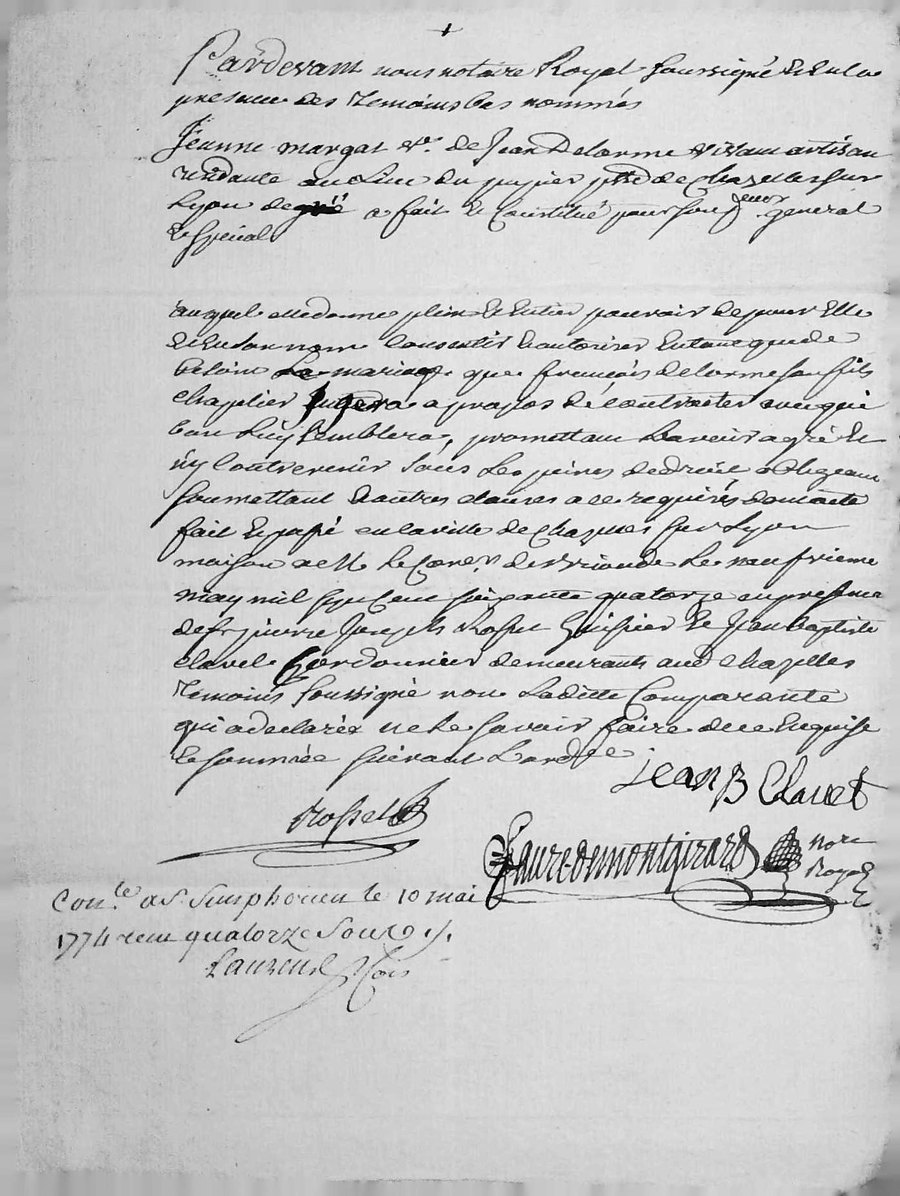 +
Pardevant nous notaire Royal soussigné et en la
presence des temoins bas nommés
Jeanne margat ve. de Jean Delorme vivant artisan
residante au lieu du pupier psse de Chazelles sur
Lyon de gré a fait et constitué pour son procureur general
et special
auquel elle donne plein et entier pouvoir de pour elle
et en son nom consentir et autoriser en tant que de
besoin le mariage que francois delorme son fils
chapelier a propos de contracter avec qui
bon luy semblera, promettant l'avoir agréé et
n'y contrevenir sous les peines de droit obligeant
soumettant et autres clauses a ce requises dont acte
fait et passé en la ville de Chazelles sur Lyon
maison de M. le de Brioude le neufvieme
may mil sept cent soixante quatorze en presence
de sr. pierre Joseph Rosset huissier et Jean Baptiste
clavel Cordonnier demeurants aud Chazelles
temoins soussigné non Laditte Comparante
qui a declarée ne le savoir faire de ce enquise
et sommée suivant l'ord.ce
Jean B Clavel
Rosset
faure-demontgirard nore
Royal
Con.lé a St. Simphorien le 10 mai
1774 recu quatorze sous
Laurend Cois